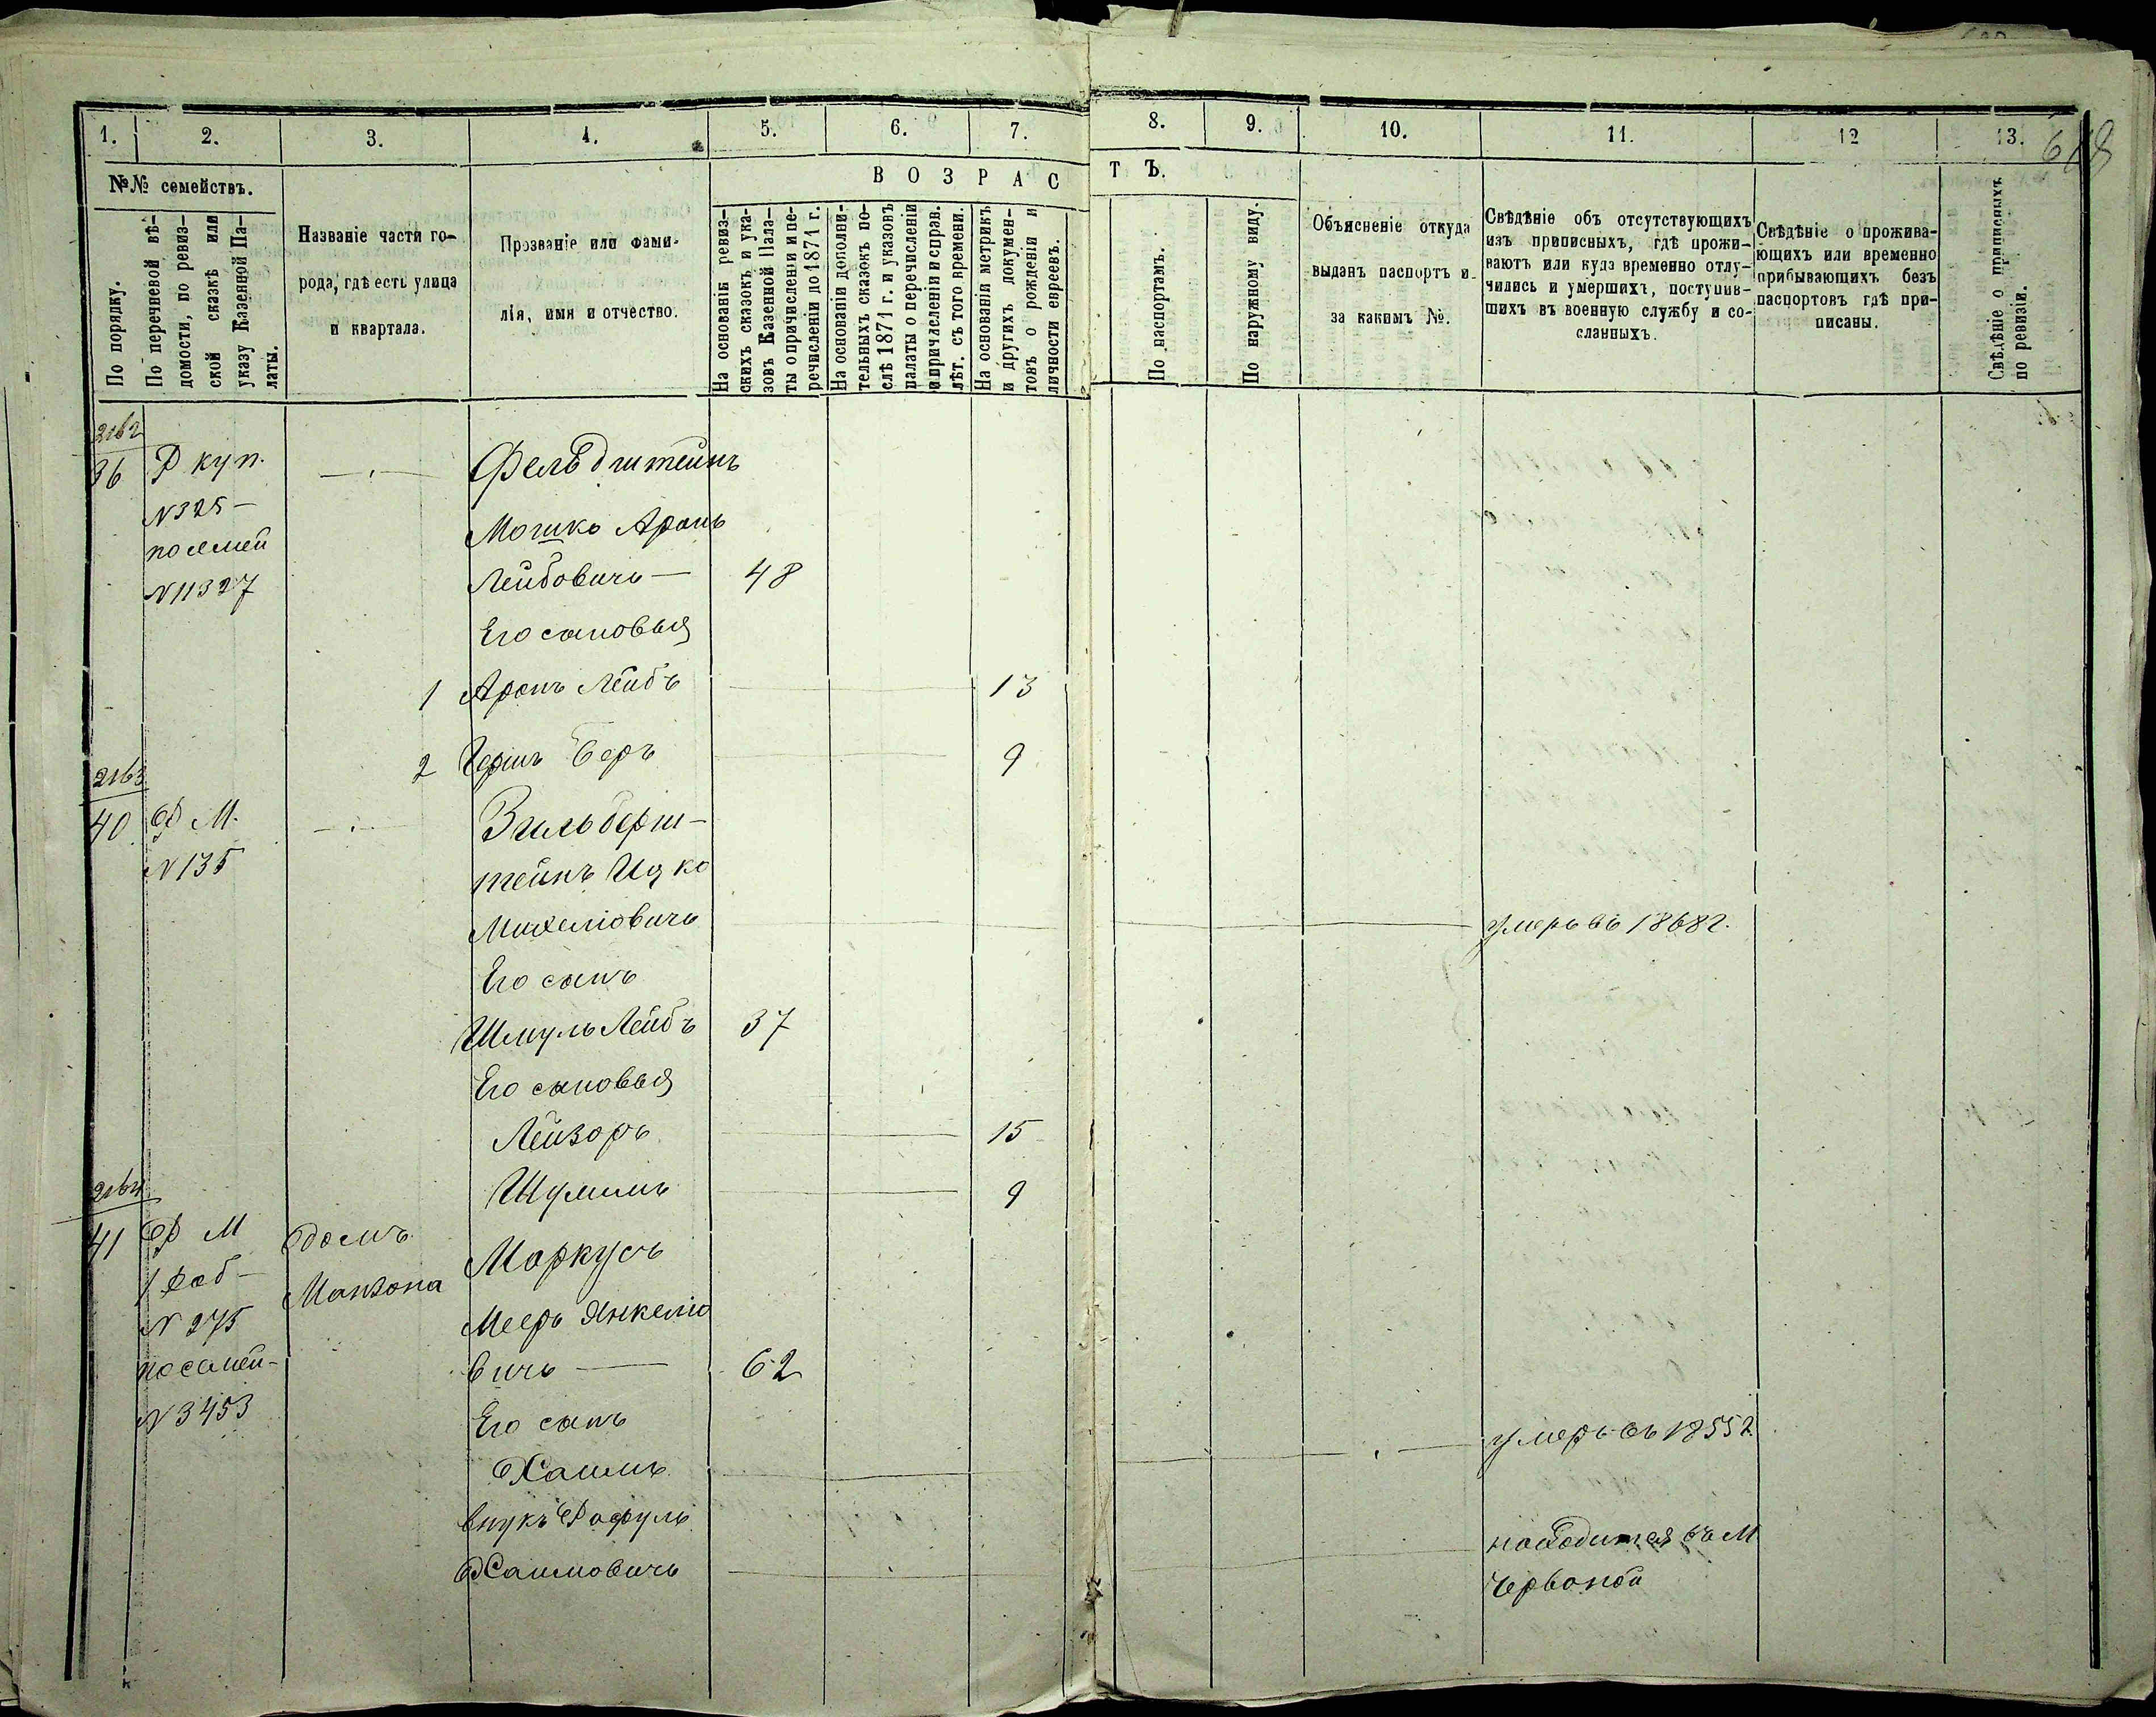 618
1. 2. 3. 4. 5. 6. 7. 8. 9. 10. 11. 12 13.
№№ семействъ.
По порядку.
По перечневой вѣ-
домости, по ревиз-
ской сказкѣ или
указу Казенной Па-
латы.
Названіе части го-
рода, гдѣ есть улица
и квартала.
Прозваніе или фами-
лія, имя и отчество.
ВОЗРАСТЪ.
На основаніи ревиз-
скихъ сказокъ и ука-
зовъ Казенной Пала-
ты о причисленіи и пе-
речисленіи до 1871 г.
На основаніи дополни-
тельныхъ сказокъ по-
слѣ 1871 г. и указовъ
палаты о перечисленіи
и причисленіи и справ.
лѣт. съ того времени.
На основаніи метрикъ
и другихъ докумен-
товъ о рожденіи и
личности евреевъ.
По паспортамъ.
По наружному виду.
Объясненіе откуда
выданъ паспортъ и
за какимъ №.
Свѣдѣніе объ отсутствующихъ
изъ приписныхъ, гдѣ прожи-
ваютъ или куда временно отлу-
чились и умершихъ, поступив-
шихъ въ военную службу и со-
сланныхъ.
Свѣдѣніе о прожива-
ющихъ или временно
прибывающихъ безъ
паспортовъ гдѣ при-
писаны.
Свѣдѣніе о приписныхъ
по ревизіи.
2162
36 Р куп. Фельдштейнъ
N 325 Мошко Аронъ
посемей
N 11327 Лейбовичъ 48
Его сыновья
1 Аронъ Лейбъ 13
2 Гершъ Беръ 9
2163
40 Р М. Зильберш-
N 135 тейнъ Ицко
Михелiовичъ умеръ въ 1868 г.
Его сынъ
Шмуль Лейбъ 37
Его сыновья
Лейзоръ 15
Шулимъ 9
2164
41 Р М домъ Маркусъ
Манзона
N 275 Мееръ Янкелiо
посемей- вичъ 62
N 3453 Его сынъ
Хаимъ умеръ въ 1855 г.
внукъ Рафуль
Хаимовичъ находится въ М